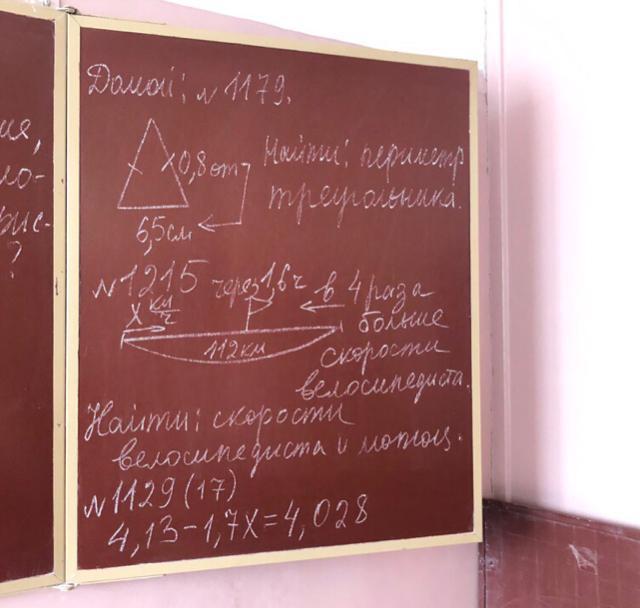 ия,
ло-
выс-
?
Домой: N 1179.
0,8 от
6,5 см
Найти: периметр
треугольника.
N 1215
через 1,6 ч
x км/ч
112 км
в 4 раза
больше
скорости
велосипедиста.
Найти: скорости
велосипедиста и мотоц.
N 1129 (17)
4,13 - 1,7x = 4,028